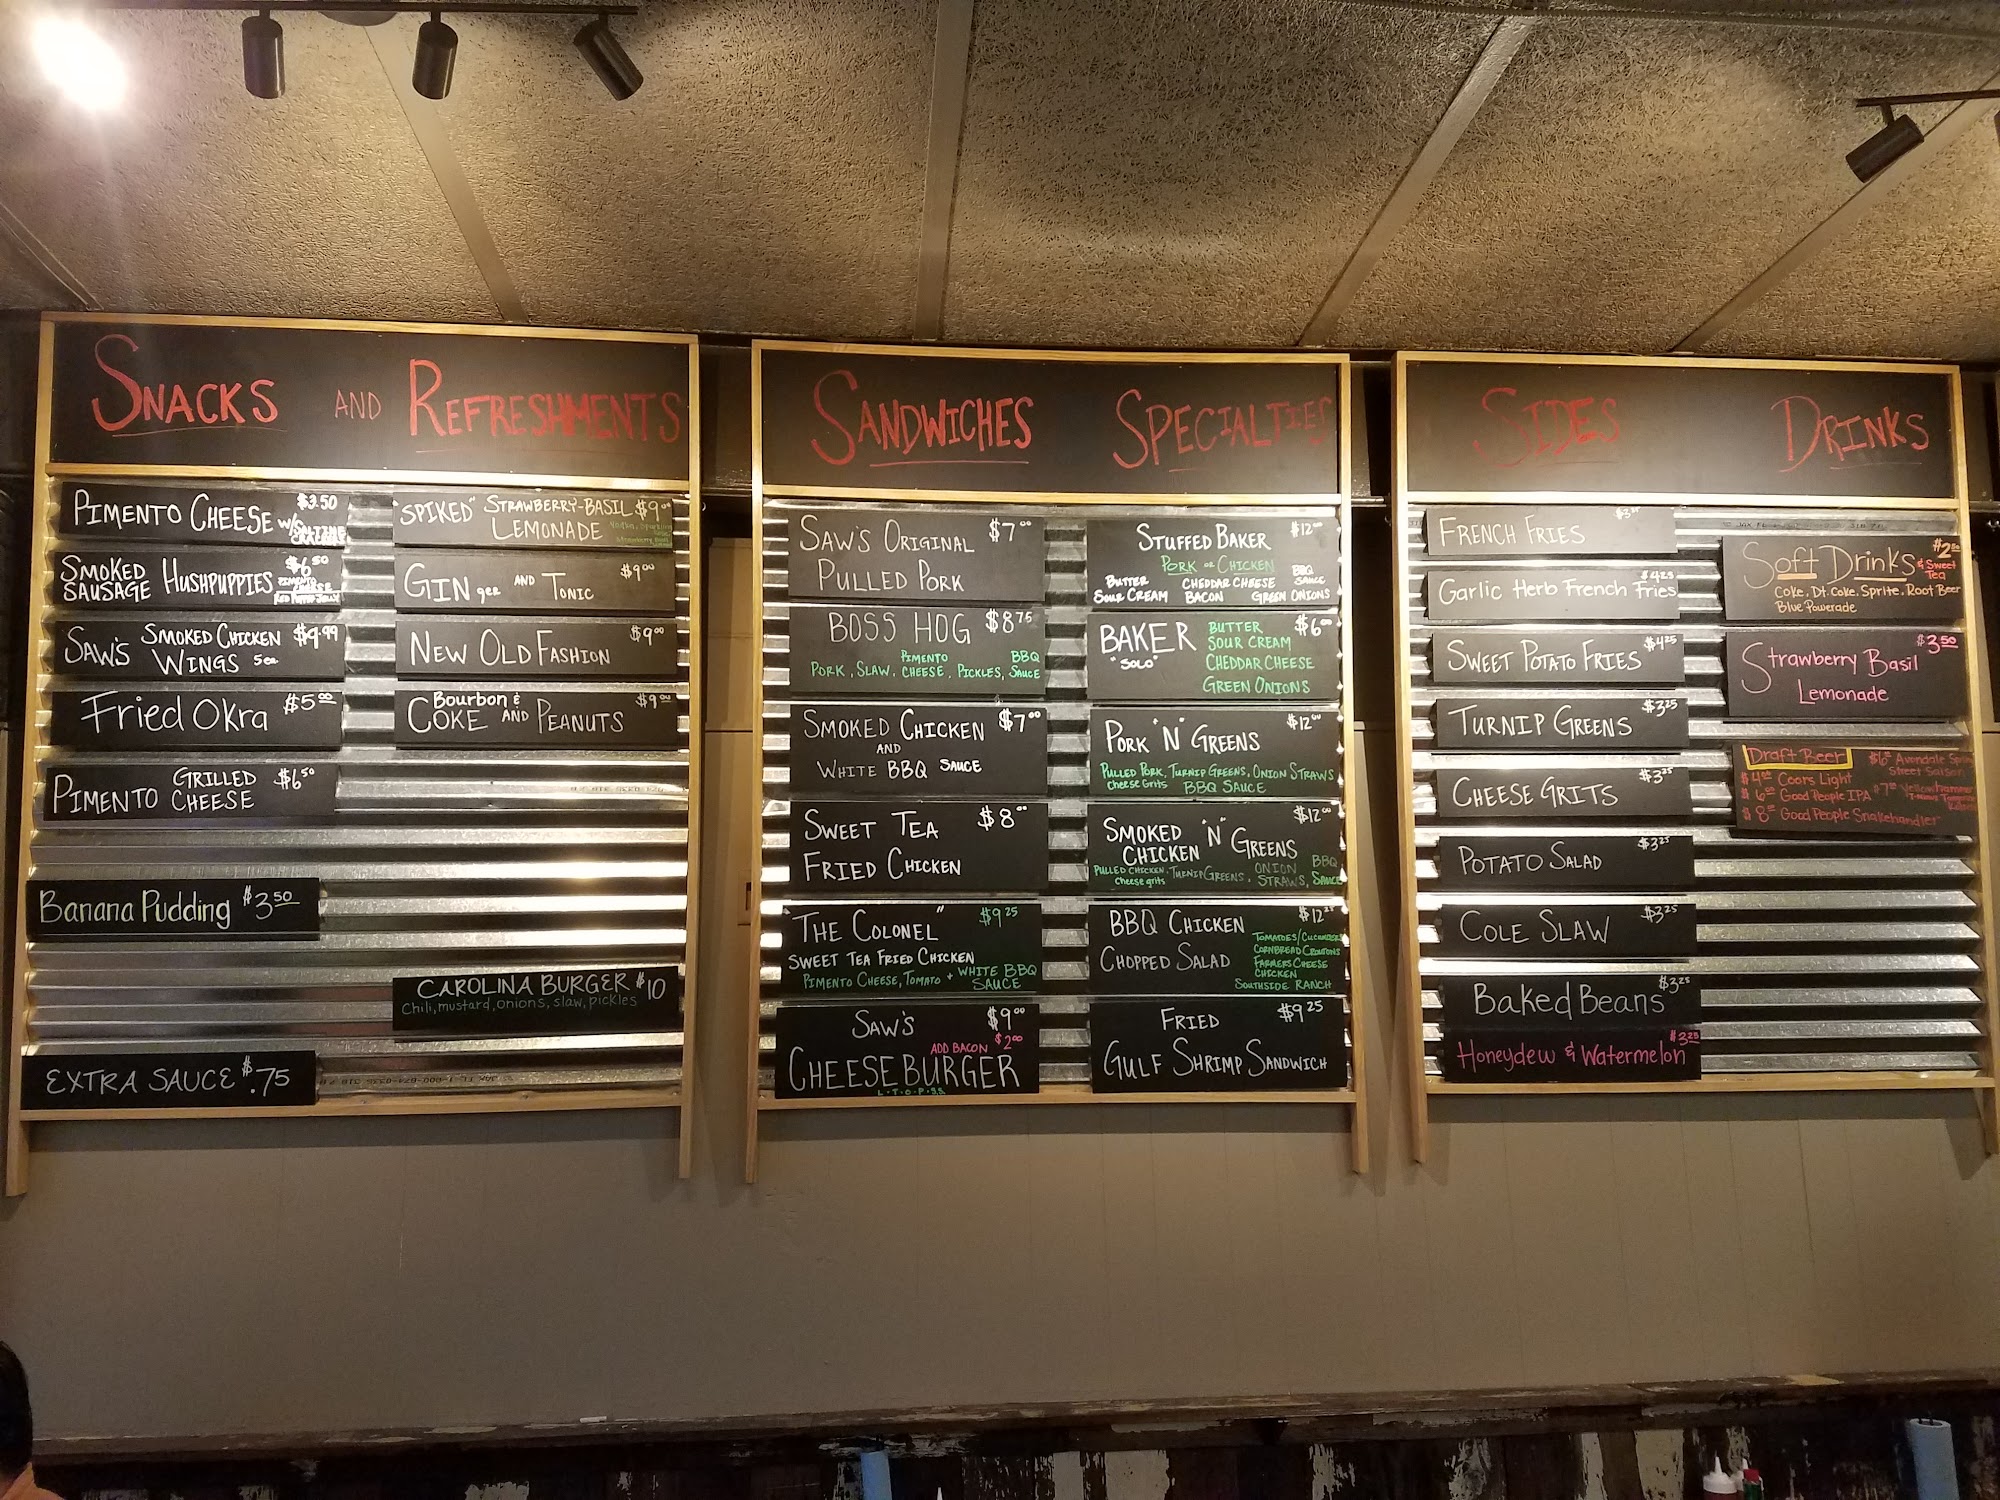 SNACKS AND REFRESHMENTS
PIMENTO CHEESE $3.50
W/ SALTINE CRACKERS
SMOKED SAUSAGE HUSHPUPPIES $6.50
PIMENTO CHEESE
RED PEPPER JELLY
SAW'S SMOKED CHICKEN WINGS 5ea $9.99
Fried Okra $5.00
PIMENTO GRILLED CHEESE $6.50
Banana Pudding $3.50
EXTRA SAUCE $.75
"SPIKED" STRAWBERRY-BASIL $9.00
LEMONADE
GINger AND TONIC $9.00
NEW OLD FASHION $9.00
Bourbon & $9.00
COKE AND PEANUTS
CAROLINA BURGER $10
Chili, mustard, onions, slaw, pickles
SANDWICHES SPECIALTIES
SAW'S ORIGINAL $7.00
PULLED PORK
BOSS HOG $8.75
PORK, SLAW, PIMENTO CHEESE, PICKLES, BBQ SAUCE
SMOKED CHICKEN $7.00
AND
WHITE BBQ SAUCE
SWEET TEA $8.00
FRIED CHICKEN
"THE COLONEL" $9.25
SWEET TEA FRIED CHICKEN
PIMENTO CHEESE, TOMATO + WHITE BBQ SAUCE
SAW'S $9.00
ADD BACON $2.00
CHEESEBURGER
L·T·O·P·S.S.
STUFFED BAKER $12.00
PORK OR CHICKEN
BUTTER CHEDDAR CHEESE BBQ SAUCE
SOUR CREAM BACON GREEN ONIONS
BAKER $6.00
"SOLO"
BUTTER
SOUR CREAM
CHEDDAR CHEESE
GREEN ONIONS
PORK "N" GREENS $12.00
PULLED PORK, TURNIP GREENS, ONION STRAWS
Cheese Grits BBQ SAUCE
SMOKED CHICKEN "N" GREENS $12.00
PULLED CHICKEN, TURNIP GREENS, ONION STRAWS, BBQ SAUCE
Cheese grits
BBQ CHICKEN $12.25
CHOPPED SALAD
TOMATOES/CUCUMBERS
CORNBREAD CROUTONS
FARMERS CHEESE
CHICKEN
SOUTHSIDE RANCH
FRIED $9.25
GULF SHRIMP SANDWICH
SIDES DRINKS
FRENCH FRIES
Garlic Herb French Fries $4.25
SWEET POTATO FRIES $4.25
TURNIP GREENS $3.25
CHEESE GRITS $3.25
POTATO SALAD $3.25
COLE SLAW $3.25
Baked Beans $3.25
Honeydew & Watermelon $3.25
Soft Drinks $2.50
& Sweet Tea
Coke, Dt. Coke, Sprite, Root Beer
Blue Powerade
Strawberry Basil $3.50
Lemonade
Draft Beer
$4.00 Coors Light
$6.00 Good People IPA
$8.00 Good People Snakehandler
$6.00 Avondale Spring Street Saison